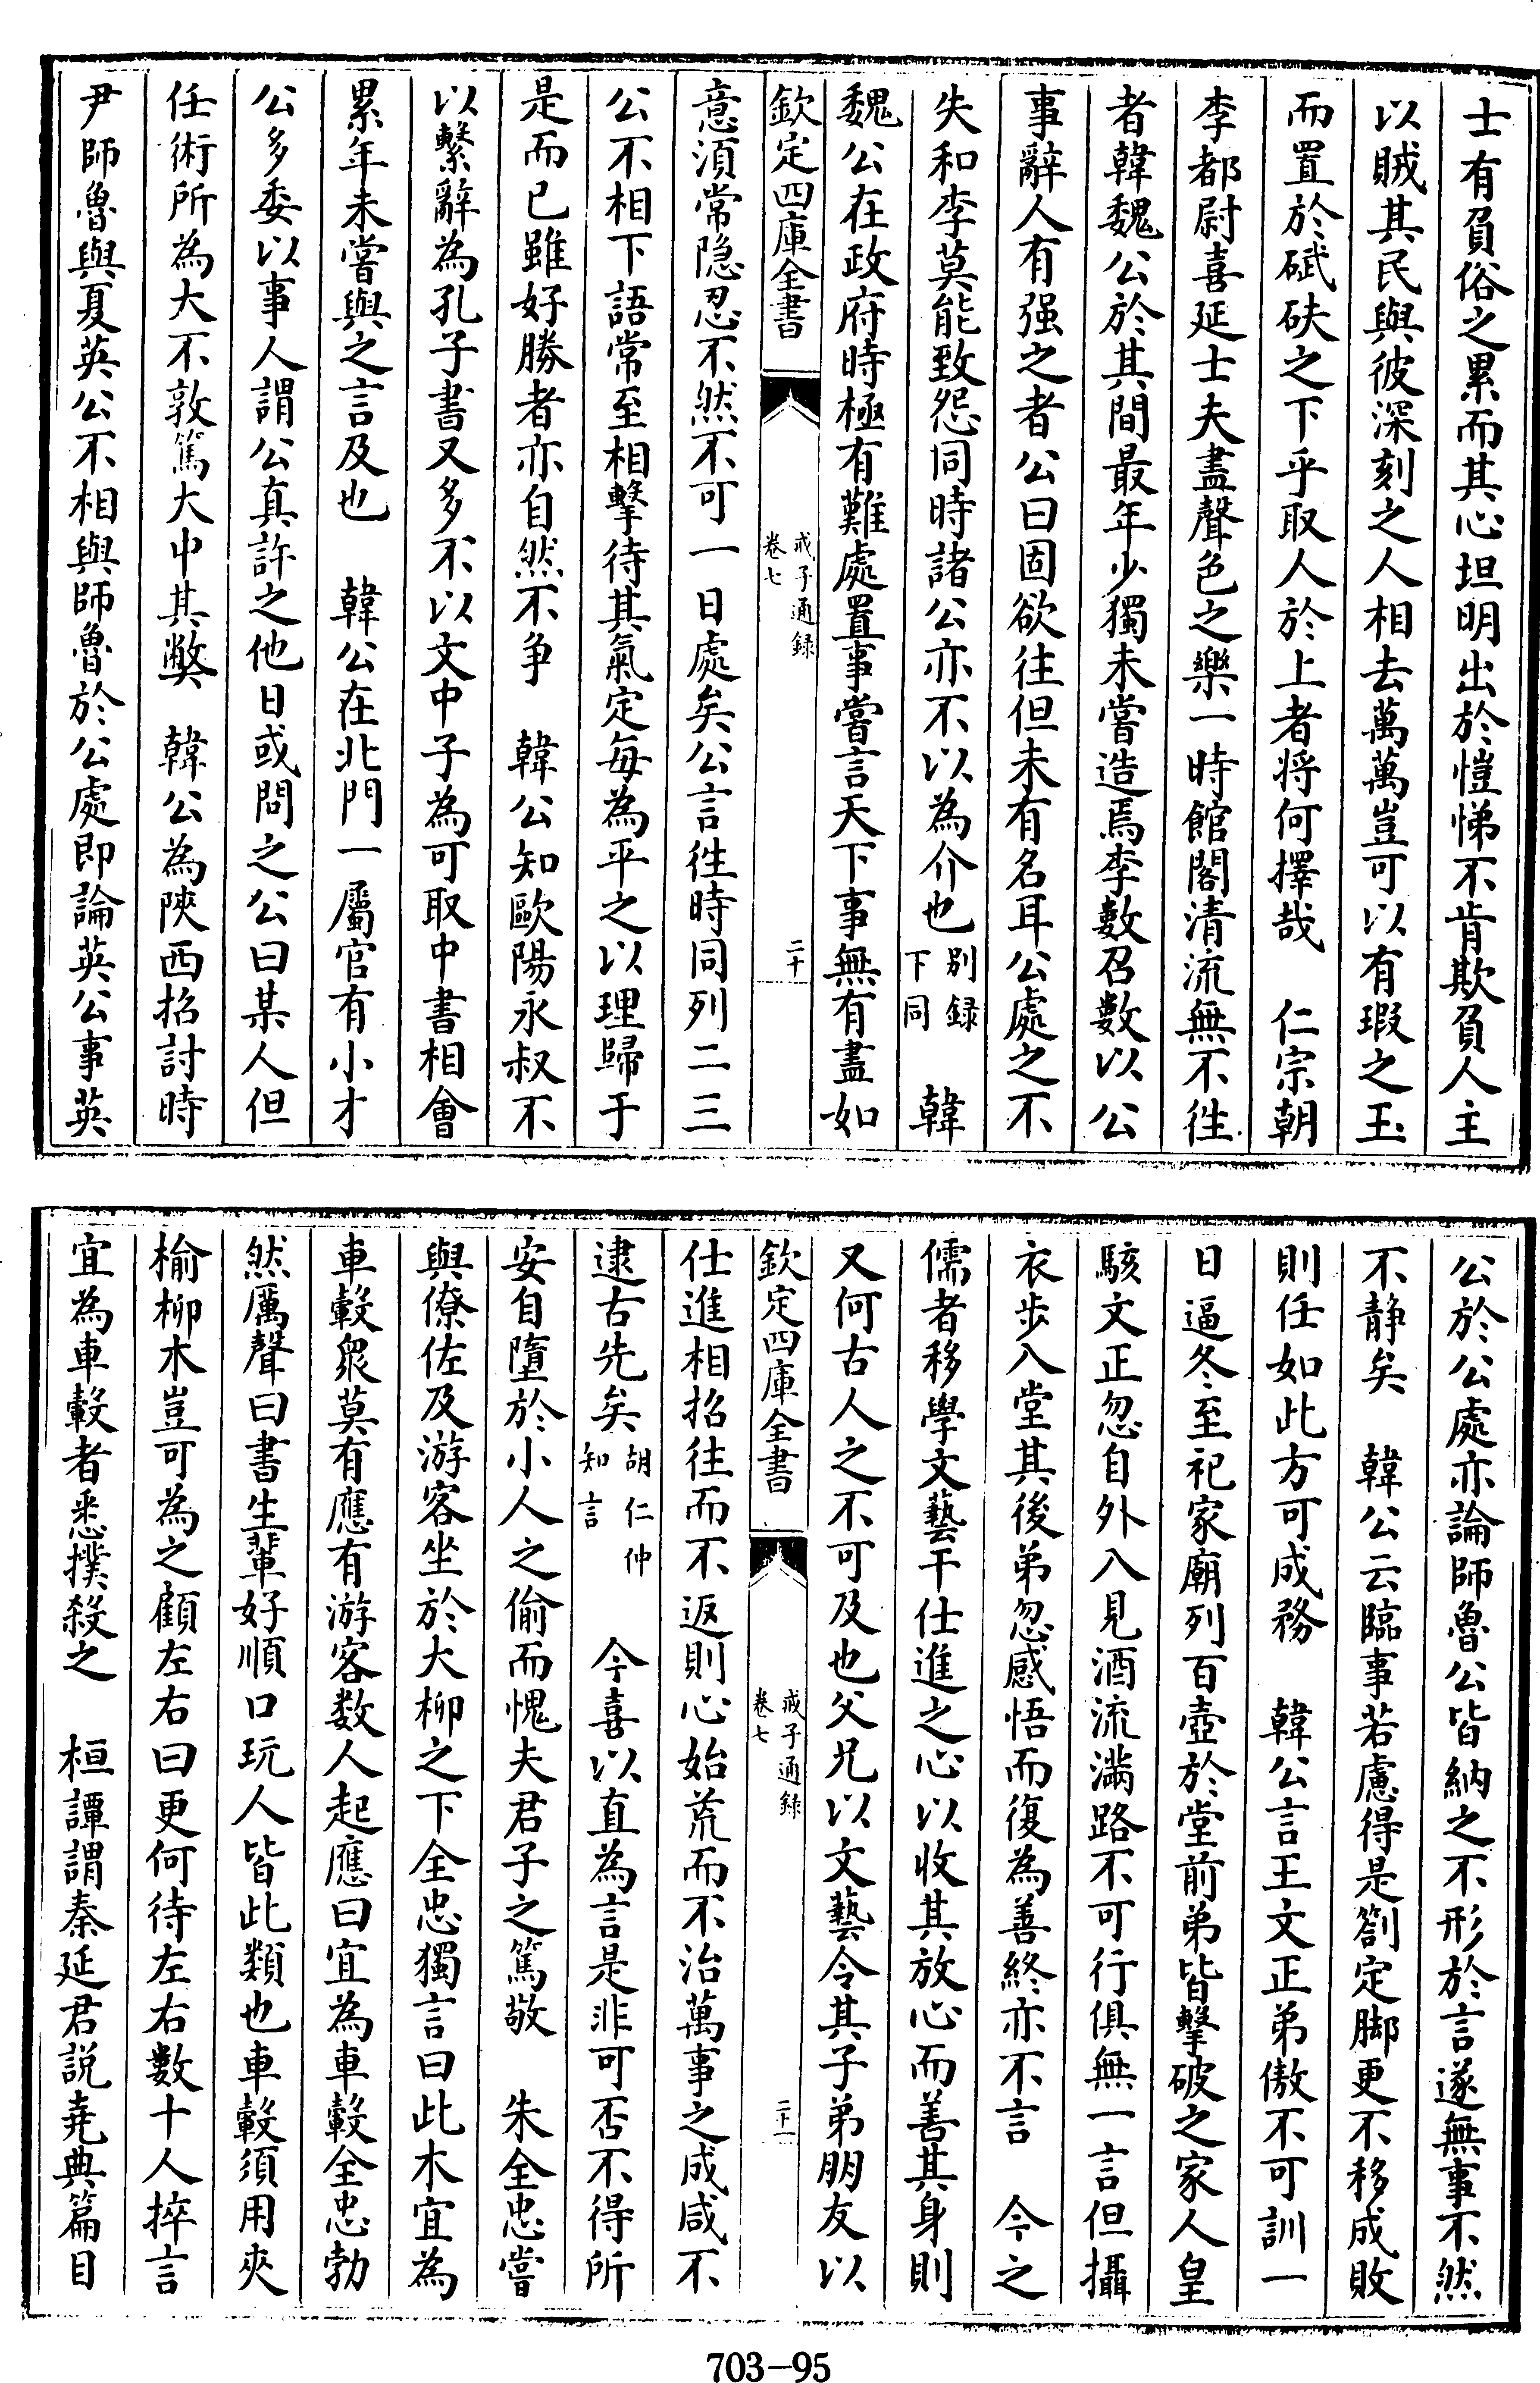 士有負俗之累而其心坦明出於愷悌不肯欺負人主
以賊其民與彼深刻之人相去萬萬豈可以有瑕之玉
而置於碔砆之下乎取人於上者将何擇哉　仁宗朝
李都尉喜延士夫盡聲色之樂一時館閣清流無不徃
者韓魏公於其間最年少獨未嘗造焉李數召數以公
事辭人有强之者公曰固欲往但未有名耳公處之不
失和李莫能致怨同時諸公亦不以為介也别録下同　韓
魏公在政府時極有難處置事嘗言天下事無有盡如
欽定四庫全書
戒子通録
卷七
二十
意湏常隐忍不然不可一日處矣公言徃時同列二三
公不相下語常至相擊待其氣定每為平之以理歸于
是而已雖好勝者亦自然不争　韓公知歐陽永叔不
以繫辭為孔子書又多不以文中子為可取中書相會
累年未嘗與之言及也　韓公在北門一屬官有小才
公多委以事人謂公真許之他日或問之公曰某人但
任術所為大不敦篤大中其獘　韓公為陝西招討時
尹師魯與夏英公不相與師魯於公處即論英公事英
公於公處亦論師魯公皆納之不形於言遂無事不然
不静矣　韓公云臨事若慮得是劄定脚更不移成敗
則任如此方可成務　韓公言王文正弟傲不可訓一
日逼冬至祀家廟列百壺於堂前弟皆擊破之家人皇
駭文正忽自外入見酒流滿路不可行俱無一言但攝
衣步入堂其後弟忽感悟而復為善終亦不言　今之
儒者移學文藝干仕進之心以收其放心而善其身則
又何古人之不可及也父兄以文藝令其子弟朋友以
欽定四庫全書
戒子通録
卷七
二十一
仕進相招往而不返則心始荒而不治萬事之成咸不
逮古先矣胡仁仲知言　今喜以直為言是非可否不得所
安自墮於小人之偷而愧夫君子之篤敬　朱全忠嘗
與僚佐及游客坐於大柳之下全忠獨言曰此木宜為
車轂衆莫有應有游客数人起應曰宜為車轂全忠勃
然厲聲曰書生輩好順口玩人皆此類也車轂須用夾
榆柳木豈可為之顧左右曰更何待左右數十人捽言
宜為車轂者悉撲殺之　桓譚謂秦延君說堯典篇目
703-95